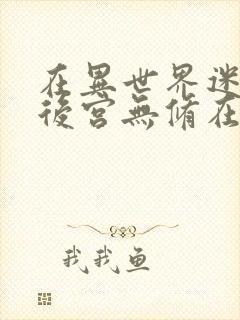 在異世界迷
後宮無脩在
我我鱼